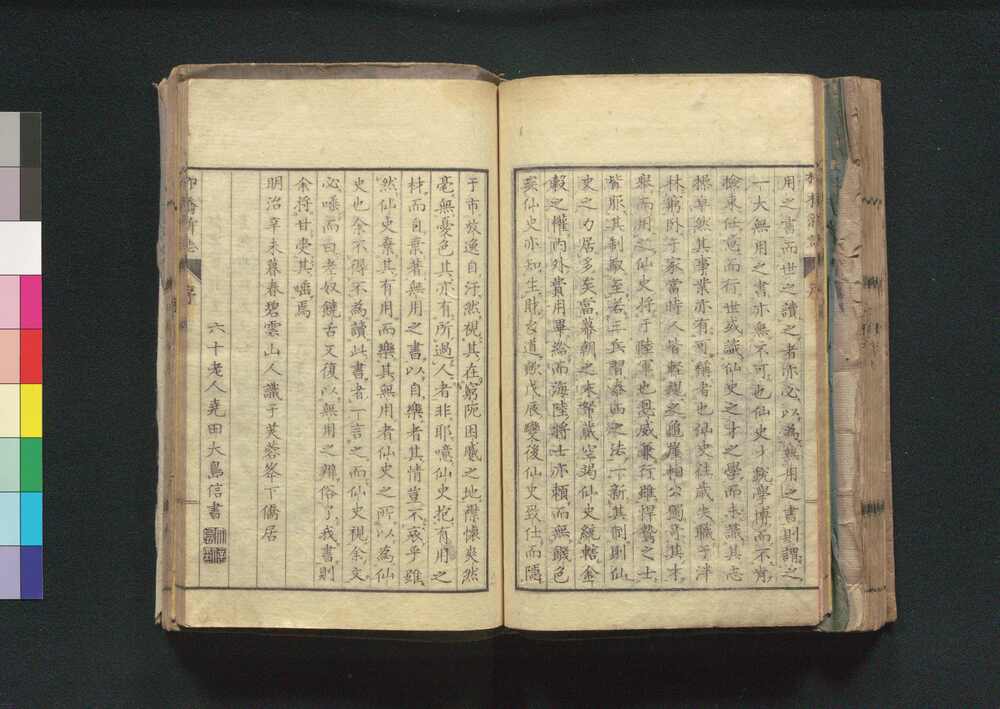 用之書而世之讀之者亦必以為無用之書則謂之
一大無用之書亦無不可也仙史少銳學博而不肯
檢束任意而行世或識仙史之才之學而未識其志
操卓然其事業亦有可稱者也仙史往歲失職于泮
林窮卧于家當時人皆輕視之龜崖相公獨奇其才
舉而用之仙史將于陸軍也恩威兼行雖悍鷙之士
皆服其制馭至若年兵
法一新其制則仙
史之力居多矣當幕朝之末帑藏空竭仙史統轄金
穀之權內外費用畢給而海陸將士亦賴而無饑色
矣仙史亦知生財有道歟戊辰變後仙史致仕而隱
于市放逸自汙然視其在窮阨困戚之地襟懷爽然
毫無憂色其亦有所過人者非耶噫仙史抱有用之
材而自棄著無用之書以自樂者其情豈不哀乎雖
然仙史棄其有用而樂其無用者仙史之所以為仙
史也余不得不為讀此書者一言之而仙史視余文
必唾而曰老奴饒舌又復以無用之辨俗了我書則
余將甘受其唾焉
明治辛未暮春碧雲山人識于芙蓉峯下僑居
六十老人堯田大鳥信書
柳橋新誌
序